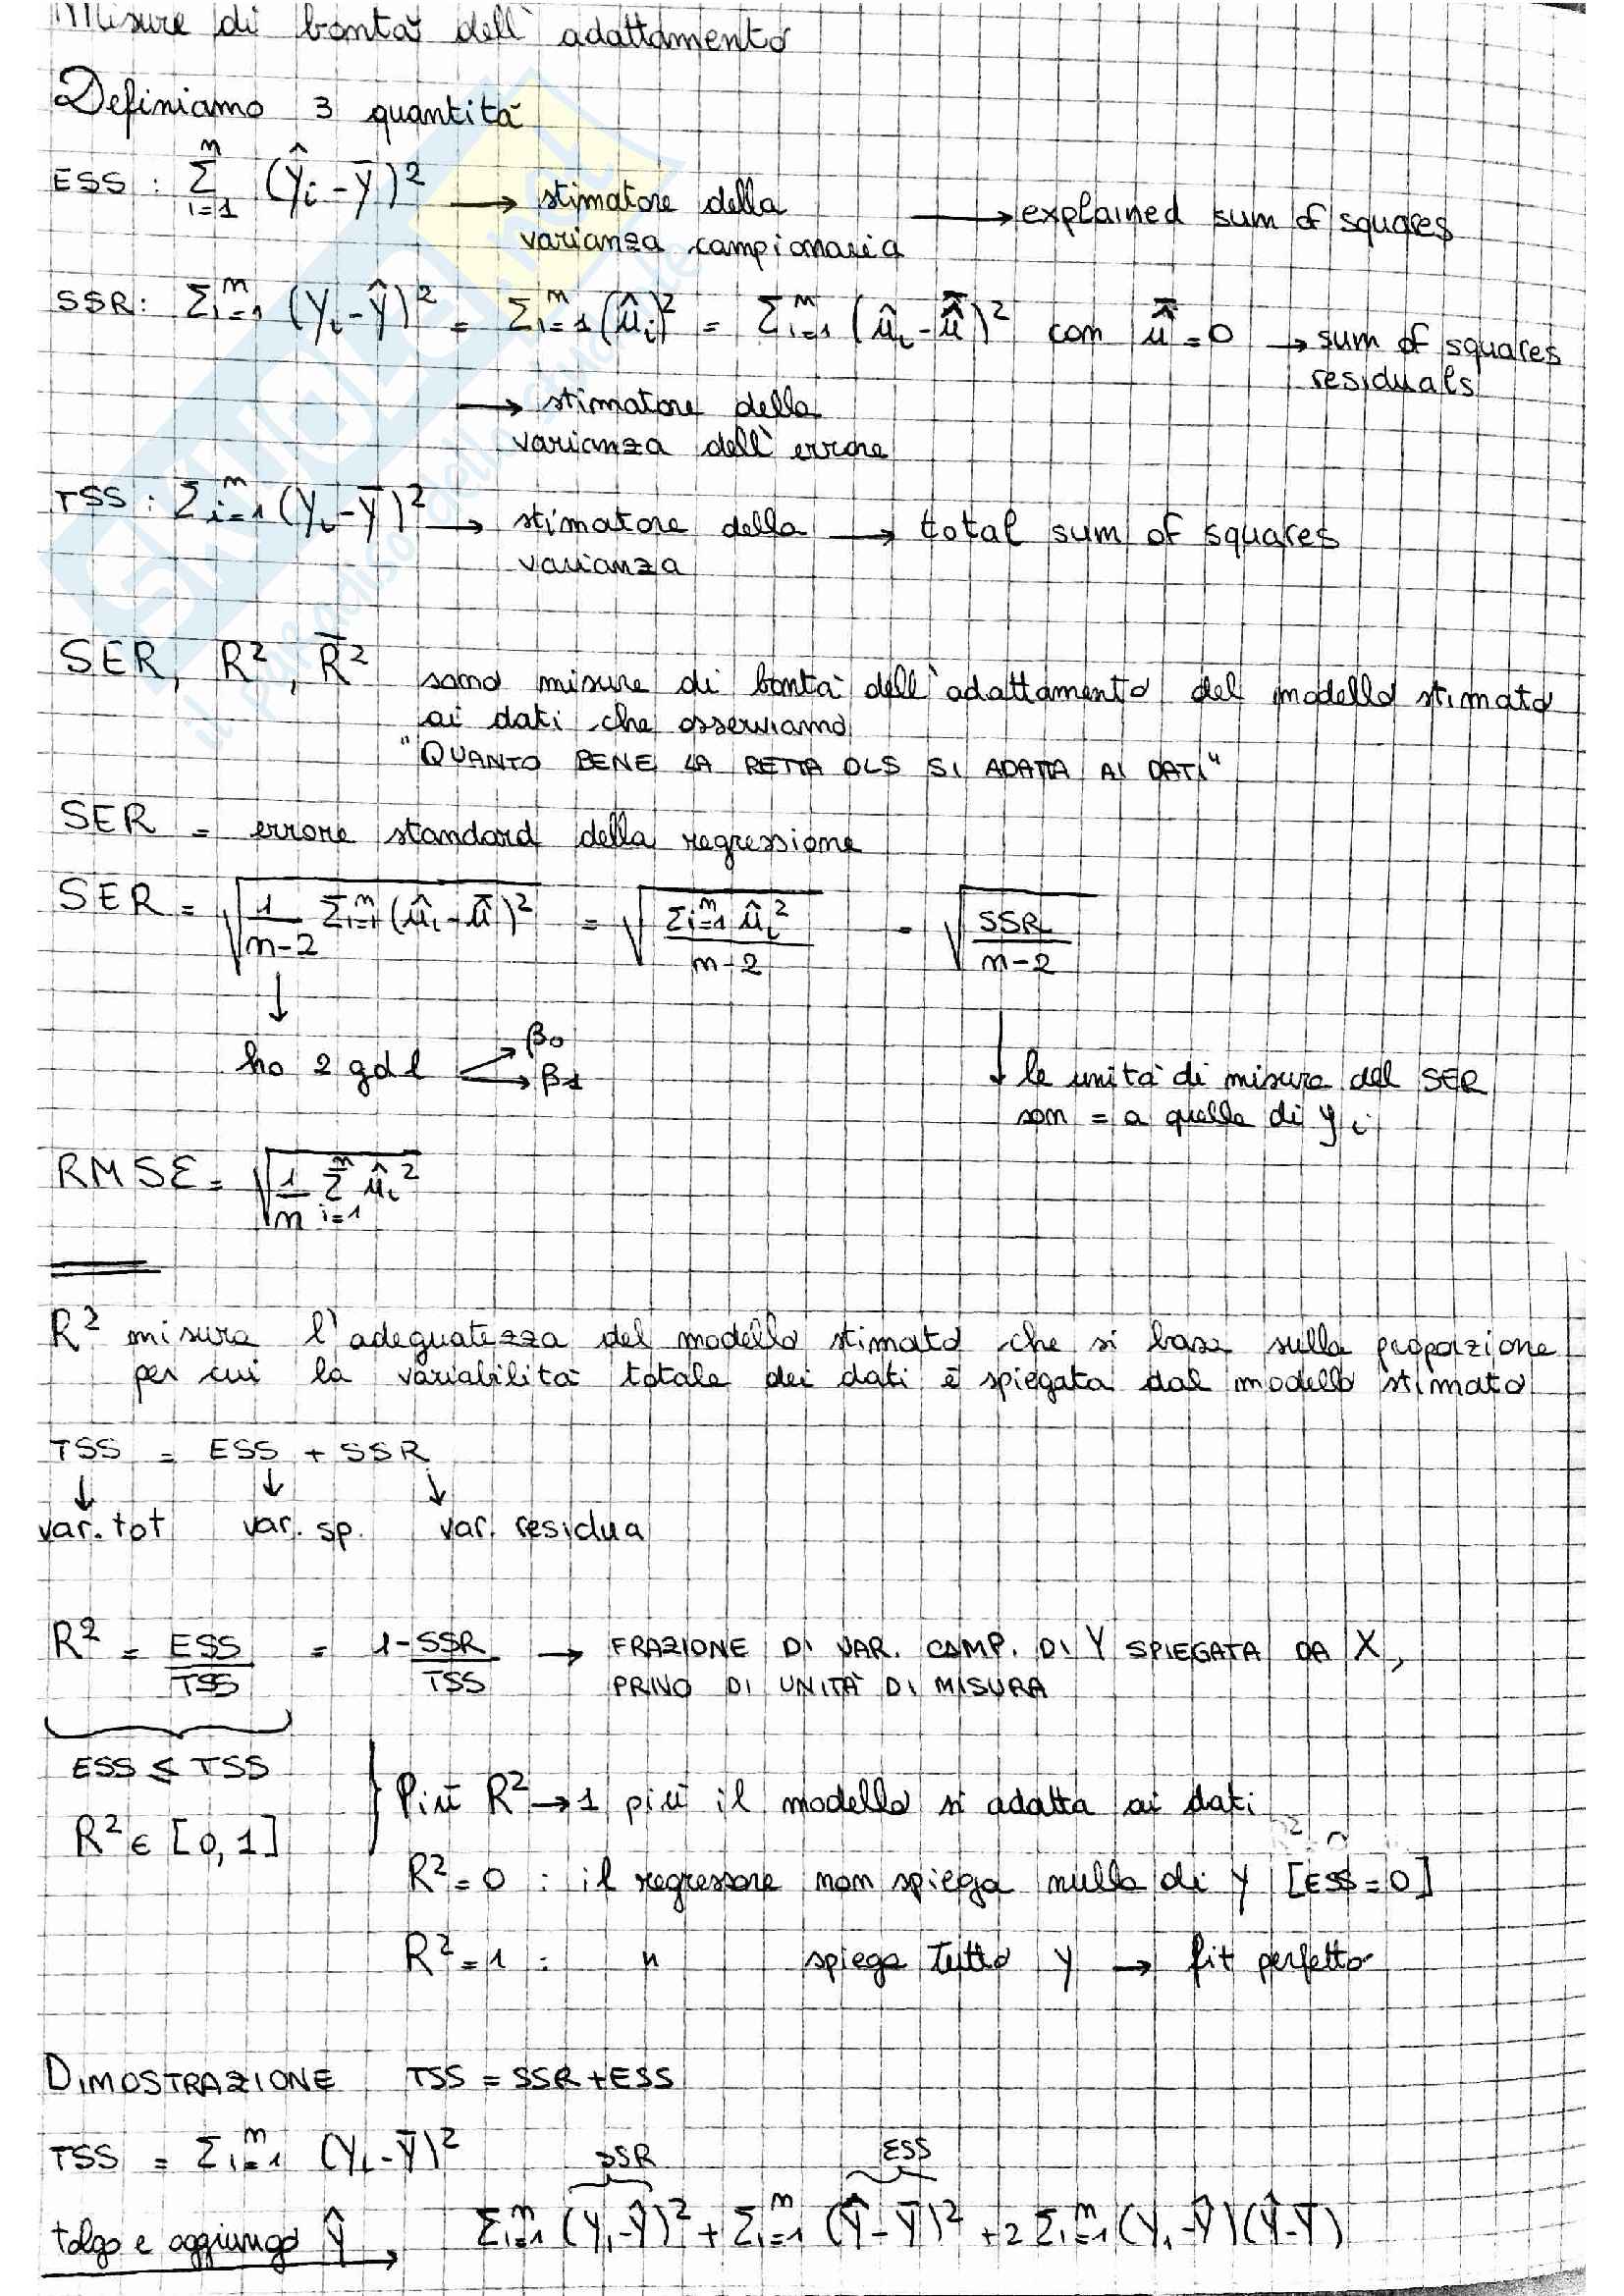 Misure di bontà dell'adattamento
Definiamo 3 quantità
ESS : Σ_{i=1}^{n} (Ŷi - Ȳ)² → stimatore della → explained sum of squares
varianza campionaria
SSR : Σ_{i=1}^{n} (Yi - Ŷ)² = Σ_{i=1}^{n} (ûi)² = Σ_{i=1}^{n} (ûi - û̄)² con û̄ = 0 → sum of squares
residuals
→ stimatore della
varianza dell'errore
TSS : Σ_{i=1}^{n} (Yi - Ȳ)² → stimatore della → total sum of squares
varianza
SER, R², R̄² sono misure di bontà dell'adattamento del modello stimato
ai dati che osserviamo
"QUANTO BENE LA RETTA OLS SI ADATTA AI DATI"
SER = errore standard della regressione
SER = √(1/(n-2) Σ_{i=1}^{n} (ûi - ū)²) = √(Σ_{i=1}^{n} ûi²/(n-2)) = √(SSR/(n-2))
↓
ho 2 gdl → β0 → β1
↓ le unità di misura del SER
son = a quelle di yi
RMSE = √(1/n Σ_{i=1}^{n} ûi²)
R² misura l'adeguatezza del modello stimato che si basa sulla proporzione
per cui la variabilità totale dei dati è spiegata dal modello stimato
TSS = ESS + SSR
↓ ↓ ↓
var. tot var. sp. var. residua
R² = ESS/TSS = 1 - SSR/TSS → FRAZIONE DI VAR. CAMP. DI Y SPIEGATA DA X,
PRIVO DI UNITÀ DI MISURA
ESS ≤ TSS
R² ∈ [0,1]
Più R² → 1 più il modello si adatta ai dati
R² = 0 : il regressore non spiega nulla di Y [ESS = 0]
R² = 1 : " spiega tutto Y → fit perfetto
DIMOSTRAZIONE TSS = SSR + ESS
TSS = Σ_{i=1}^{n} (Yi - Ȳ)²
SSR ESS
tolgo e aggiungo Ŷ → Σ_{i=1}^{n} (Yi - Ŷ)² + Σ_{i=1}^{n} (Ŷ - Ȳ)² + 2 Σ_{i=1}^{n} (Yi - Ŷ)(Ŷ - Ȳ)